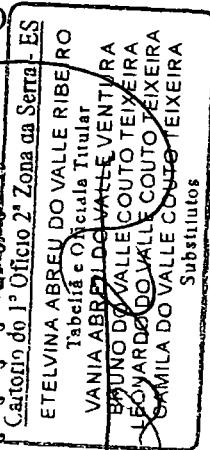 Cartorio do 1º Oficio 2ª Zona da Serra - ES
ETELVINA ABREU DO VALLE RIBEIRO
Tabeliã e Oficiala Titular
VANIA ABREU DO VALLE VENTURA
BRUNO DO VALLE COUTO TEIXEIRA
LEONARDO DO VALLE COUTO TEIXEIRA
CAMILA DO VALLE COUTO TEIXEIRA
Substitutos